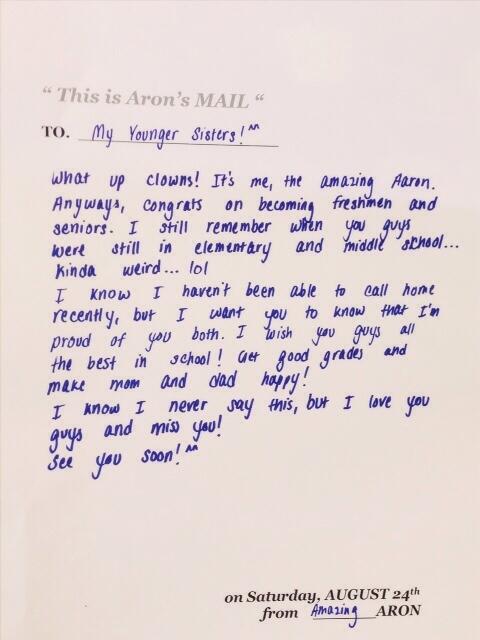 “ This is Aron's MAIL “
TO. My Younger Sisters! ^^
What up clowns! It's me, the amazing Aaron.
Anyways, congrats on becoming freshmen and
seniors. I still remember when you guys
were still in elementary and middle school...
kinda weird... lol
I know I haven't been able to call home
recently, but I want you to know that I'm
proud of you both. I wish you guys all
the best in school! Get good grades and
make mom and dad happy!
I know I never say this, but I love you
guys and miss you!
See you soon! ^^
on Saturday, AUGUST 24th
from Amazing ARON